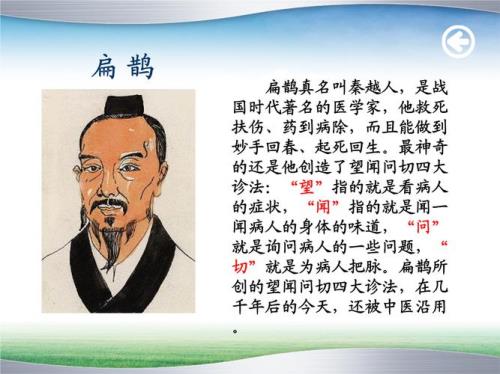 扁鹊
扁鹊真名叫秦越人，是战
国时代著名的医学家，他救死
扶伤、药到病除，而且能做到
妙手回春、起死回生。最神奇
的还是他创造了望闻问切四大
诊法：“望”指的就是看病人
的症状，“闻”指的就是闻一
闻病人的身体的味道，“问”
就是询问病人的一些问题，“
切”就是为病人把脉。扁鹊所
创的望闻问切四大诊法，在几
千年后的今天，还被中医沿用
。